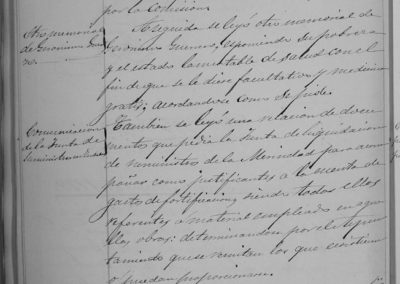 por la Comision.
Otro memorial
de Geronimo Gue
ro.
A seguida se leyó otro memorial de
Geronimo Guerrero, esponiendo su pobreza
y el estado lamentable de salud con el
fin de que se le diese facultativo y medicina
gratis; acordandose como se pide.
Comunicacion
de la Junta de
Suministros
Tambien se leyó una relacion de docu
mentos que pedia la Junta de liquidacion
de suministros de la Merindad para acom
pañar como justificantes a la cuenta de
gastos de fortificacion, siendo todos ellos
referentes a material empleado en aque
llas obras: determinandose por el Ayun
tamiento que se remitan los que existiesen
o puedan proporcionarse.